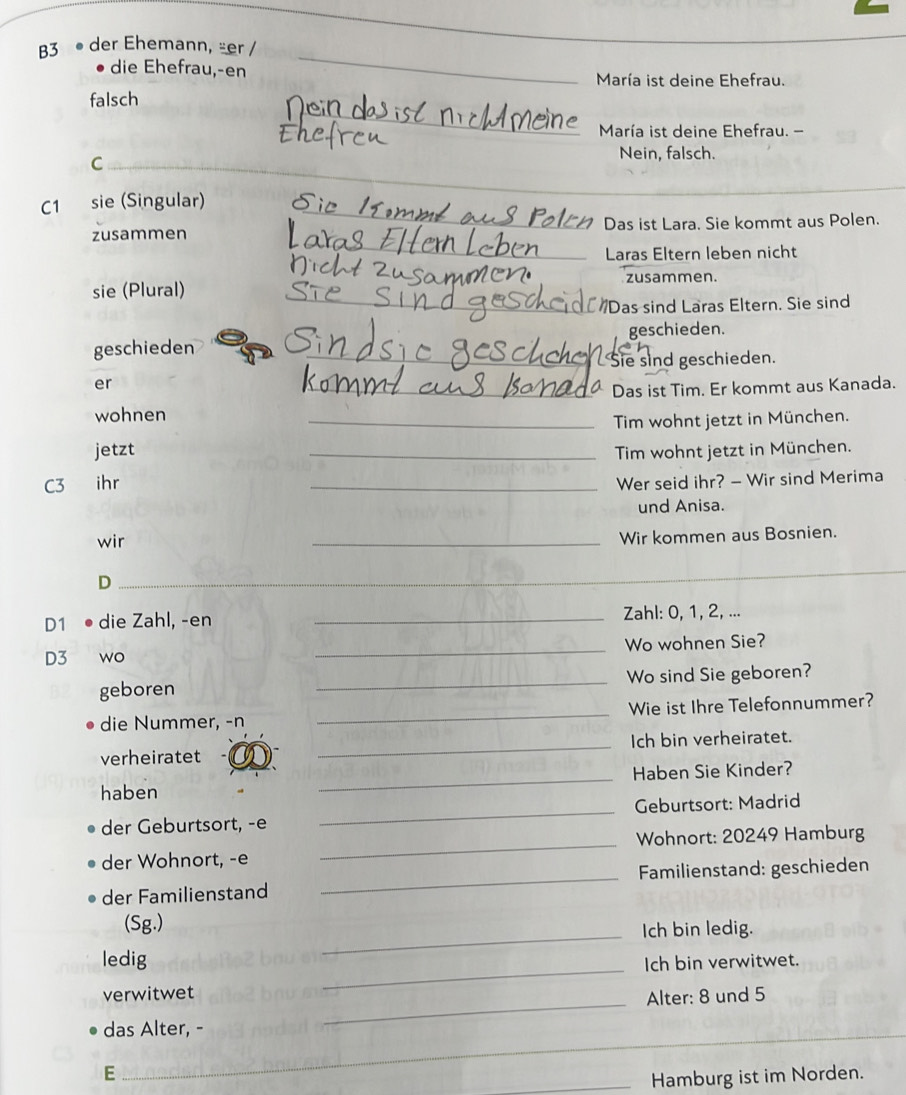 B3 • der Ehemann, ⸚er /
• die Ehefrau,-en
María ist deine Ehefrau.
falsch
Nein das ist nicht meine
Ehefreu
María ist deine Ehefrau. –
Nein, falsch.
C
C1 sie (Singular) Sie kommt aus Polen Das ist Lara. Sie kommt aus Polen.
zusammen Laras Eltern leben Laras Eltern leben nicht
nicht zusammen. zusammen.
sie (Plural) Sie sind gescheiden Das sind Laras Eltern. Sie sind
geschieden.
geschieden Sind sie geschehenden Sie sind geschieden.
er kommt aus Kanada Das ist Tim. Er kommt aus Kanada.
wohnen Tim wohnt jetzt in München.
jetzt Tim wohnt jetzt in München.
C3 ihr Wer seid ihr? – Wir sind Merima
und Anisa.
wir Wir kommen aus Bosnien.
D
D1 • die Zahl, -en Zahl: 0, 1, 2, ...
D3 wo Wo wohnen Sie?
geboren Wo sind Sie geboren?
• die Nummer, -n Wie ist Ihre Telefonnummer?
verheiratet Ich bin verheiratet.
haben Haben Sie Kinder?
• der Geburtsort, -e Geburtsort: Madrid
• der Wohnort, -e Wohnort: 20249 Hamburg
• der Familienstand Familienstand: geschieden
(Sg.)
ledig Ich bin ledig.
verwitwet Ich bin verwitwet.
• das Alter, - Alter: 8 und 5
E
Hamburg ist im Norden.